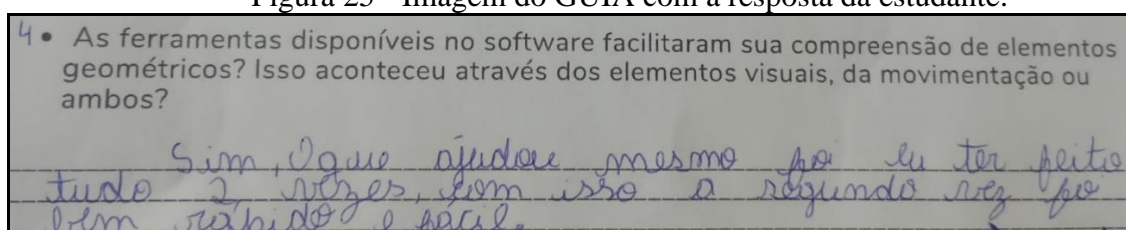 Figura 25 - Imagem do GUIA com a resposta da estudante.
4 • As ferramentas disponíveis no software facilitaram sua compreensão de elementos
geométricos? Isso aconteceu através dos elementos visuais, da movimentação ou
ambos?
Sim, O que ajudou mesmo foi eu ter feito
tudo 2 vezes, com isso a segundo vez foi
bem rápido e fácil.